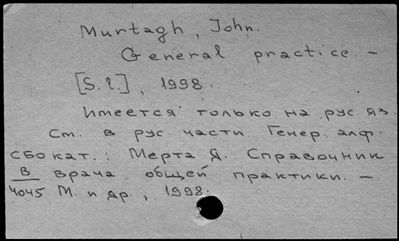 Murtagh, John.
General practice. -
[S.l.], 1998.
Имеется только на рус яз.
См. в рус части Генер. алф.
СБО кат.: Мерта Я. Справочник
В врача общей практики. -
4045 М. и др., 1998.